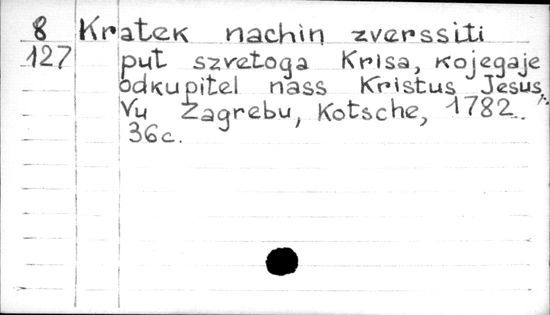 8 Kratek nachin zverssiti
127 put szvetoga Krisa, kojegaje
odkupitel nass Kristus Jesus,
Vu Zagrebu, Kotsche, 1782.
36c.